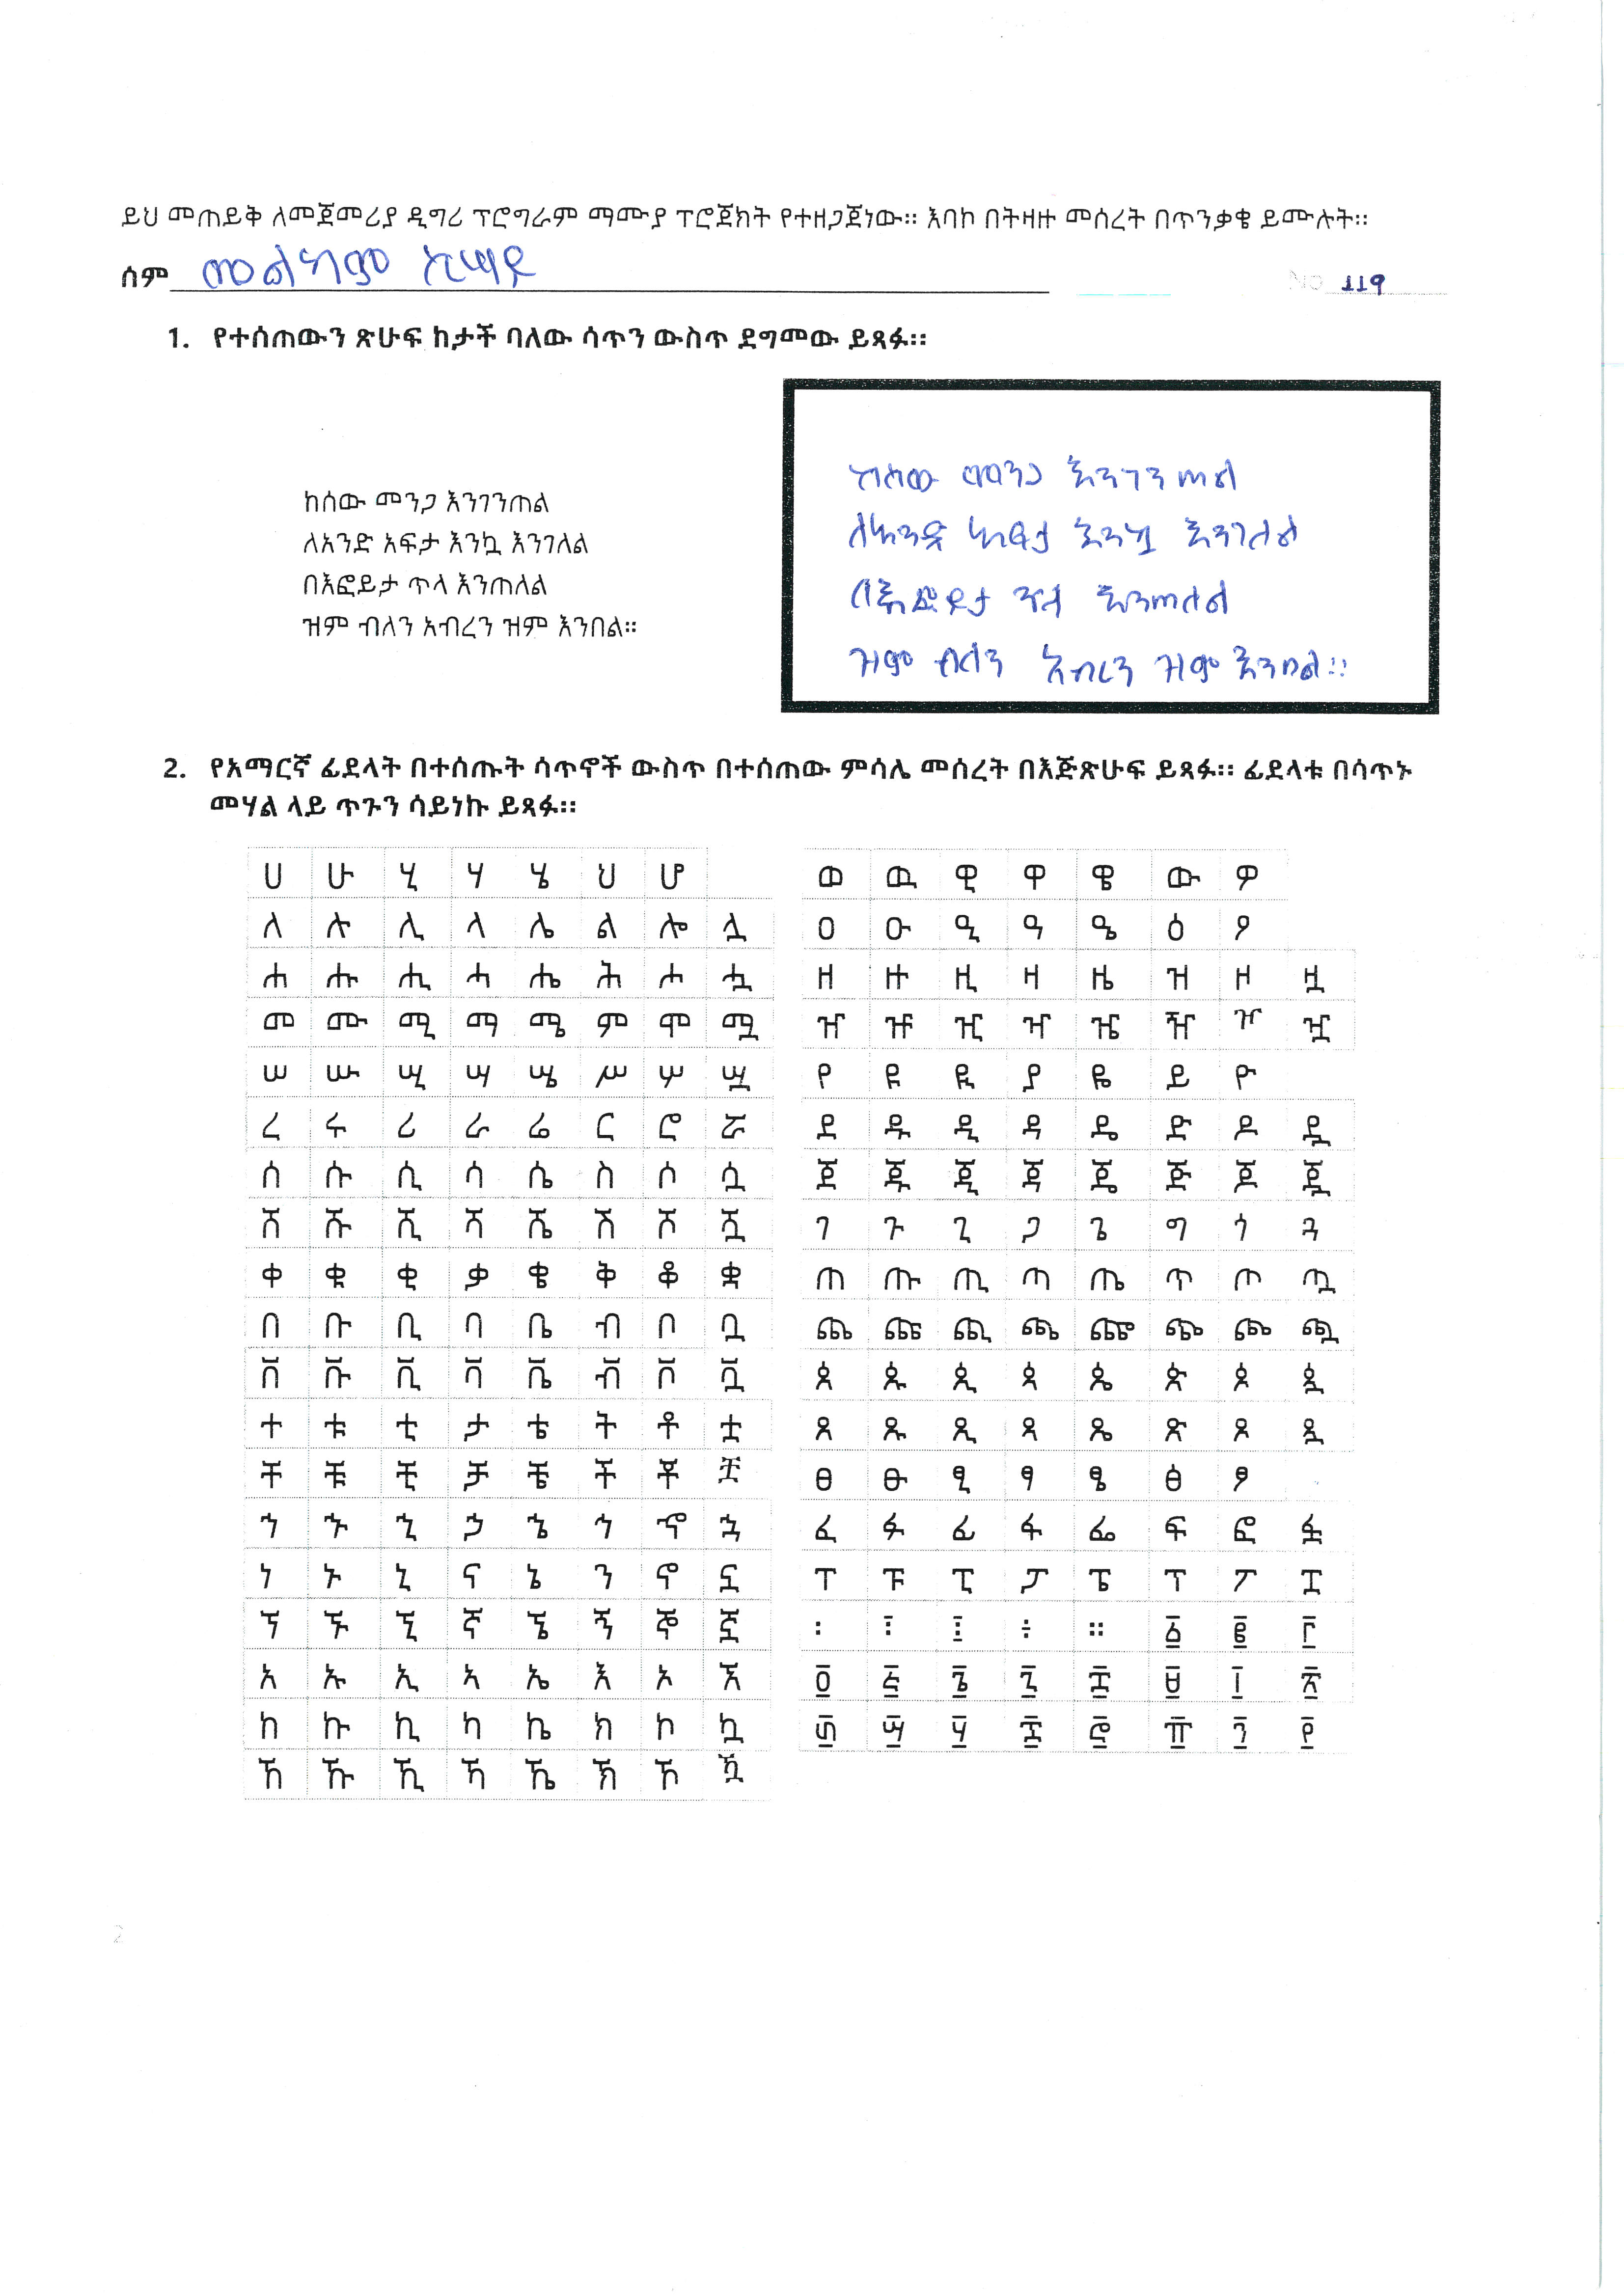 ይህ መጠይቅ ለመጀመሪያ ዲግሪ ፕሮግራም ማሙያ ፕሮጀክት የተዘጋጀነው። እባኮ በትዛዙ መሰረት በጥንቃቄ ይሙሉት።
ስም መልካም ኢሣይ
No 119
1. የተሰጠውን ጽሁፍ ከታች ባለው ሳጥን ውስጥ ደግመው ይጻፉ።
ከሰው መንጋ እንገንጠል
ለአንድ አፍታ እንኳ እንገለል
በእፎይታ ጥላ እንጠለል
ዝም ብለን አብረን ዝም እንበል።
ከሰው መንጋ እንገንጠል
ለአንድ አፍታ እንኳ እንገለል
በእፎይታ ጥላ እንጠለል
ዝም ብለን አብረን ዝም እንበል።
2. የአማርኛ ፊደላት በተሰጡት ሳጥኖች ውስጥ በተሰጠው ምሳሌ መሰረት በእጅጽሁፍ ይጻፉ። ፊደላቱ በሳጥኑ
መሃል ላይ ጥጉን ሳይነኩ ይጻፉ።
ሀ ሁ ሂ ሃ ሄ ህ ሆ
ለ ሉ ሊ ላ ሌ ል ሎ ሏ
ሐ ሑ ሒ ሓ ሔ ሕ ሖ ሗ
መ ሙ ሚ ማ ሜ ም ሞ ሟ
ሠ ሡ ሢ ሣ ሤ ሥ ሦ ሧ
ረ ሩ ሪ ራ ሬ ር ሮ ሯ
ሰ ሱ ሲ ሳ ሴ ስ ሶ ሷ
ሸ ሹ ሺ ሻ ሼ ሽ ሾ ሿ
ቀ ቁ ቂ ቃ ቄ ቅ ቆ ቋ
በ ቡ ቢ ባ ቤ ብ ቦ ቧ
ቨ ቩ ቪ ቫ ቬ ቭ ቮ ቯ
ተ ቱ ቲ ታ ቴ ት ቶ ቷ
ቸ ቹ ቺ ቻ ቼ ች ቾ ቿ
ኀ ኁ ኂ ኃ ኄ ኅ ኆ ኋ
ነ ኑ ኒ ና ኔ ን ኖ ኗ
ኘ ኙ ኚ ኛ ኜ ኝ ኞ ኟ
አ ኡ ኢ ኣ ኤ እ ኦ ኧ
ከ ኩ ኪ ካ ኬ ክ ኮ ኳ
ኸ ኹ ኺ ኻ ኼ ኽ ኾ ዃ
ወ ዉ ዊ ዋ ዌ ው ዎ
ዐ ዑ ዒ ዓ ዔ ዕ ዖ
ዘ ዙ ዚ ዛ ዜ ዝ ዞ ዟ
ዠ ዡ ዢ ዣ ዤ ዥ ዦ ዧ
የ ዩ ዪ ያ ዬ ይ ዮ
ደ ዱ ዲ ዳ ዴ ድ ዶ ዷ
ጀ ጁ ጂ ጃ ጄ ጅ ጆ ጇ
ገ ጉ ጊ ጋ ጌ ግ ጎ ጓ
ጠ ጡ ጢ ጣ ጤ ጥ ጦ ጧ
ጨ ጩ ጪ ጫ ጬ ጭ ጮ ጯ
ጰ ጱ ጲ ጳ ጴ ጵ ጶ ጷ
ጸ ጹ ጺ ጻ ጼ ጽ ጾ ጿ
ፀ ፁ ፂ ፃ ፄ ፅ ፆ
ፈ ፉ ፊ ፋ ፌ ፍ ፎ ፏ
ፐ ፑ ፒ ፓ ፔ ፕ ፖ ፗ
፡ ፧ ፨ ፥ ። ፩ ፪ ፫
፬ ፭ ፮ ፯ ፰ ፱ ፲ ፳
፴ ፵ ፶ ፷ ፸ ፹ ፺ ፻